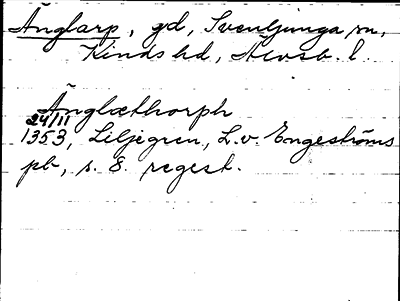 Änglarp, gd, Svenljunga sn,
Kinds hd, Älvsb. l.
Änglæthorph
24/11
1353, Liljegren, L. v. Engeströms
pb, s. 8. regest.